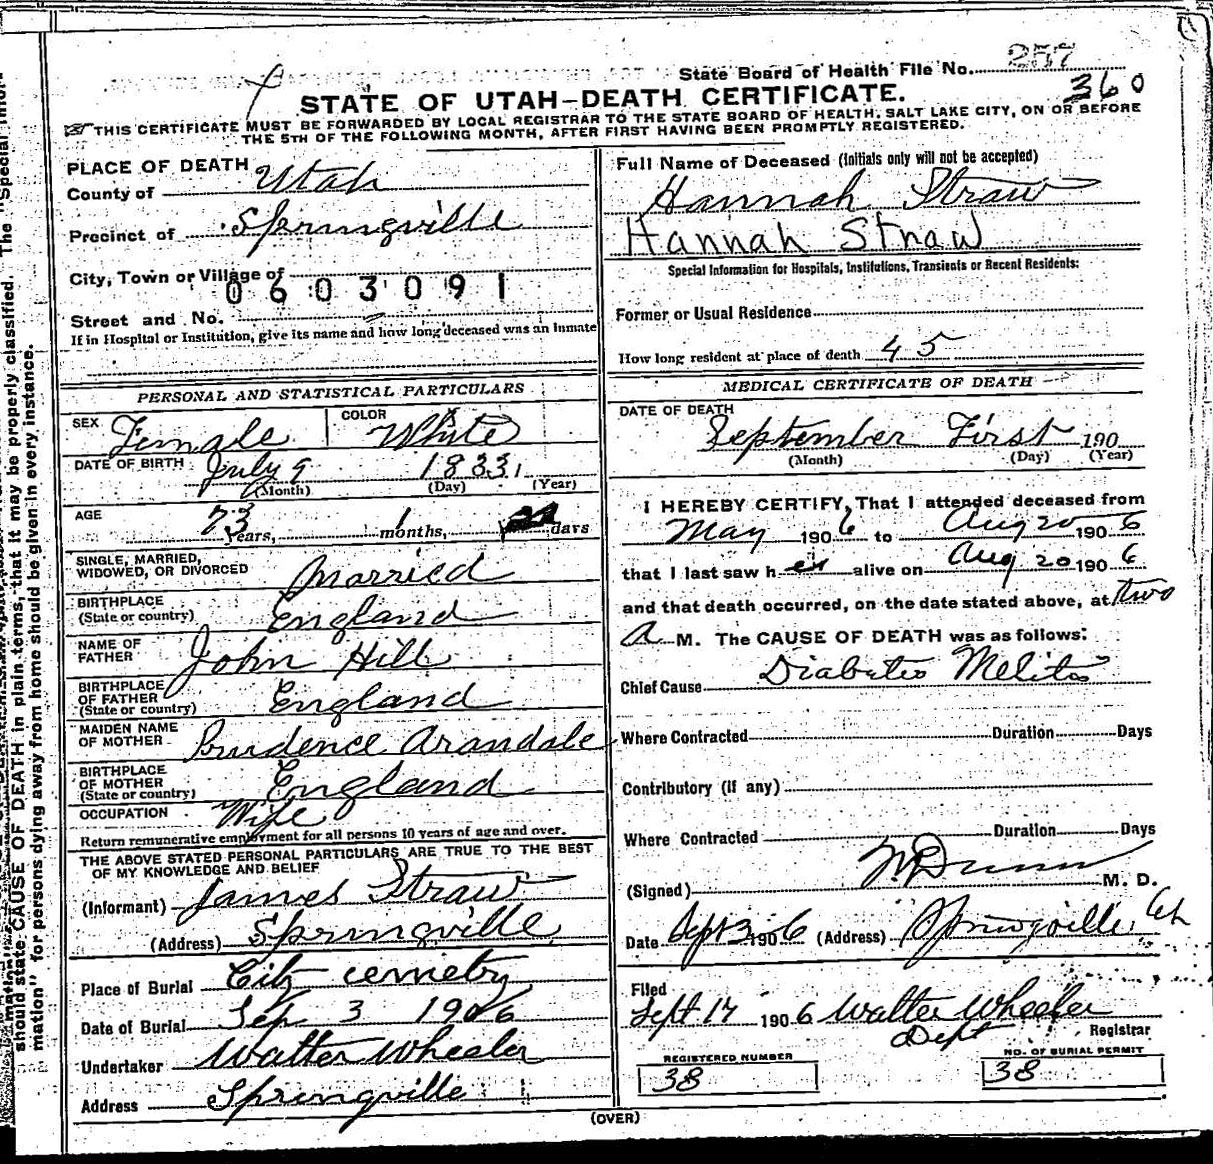 257
State Board of Health File No.
360
STATE OF UTAH–DEATH CERTIFICATE.
THIS CERTIFICATE MUST BE FORWARDED BY LOCAL REGISTRAR TO THE STATE BOARD OF HEALTH, SALT LAKE CITY, ON OR BEFORE
THE 5TH OF THE FOLLOWING MONTH, AFTER FIRST HAVING BEEN PROMPTLY REGISTERED.
PLACE OF DEATH
County of Utah
Precinct of Springville
City, Town or Village of
0603091
Street and No.
If in Hospital or Institution, give its name and how long deceased was an Inmate
PERSONAL AND STATISTICAL PARTICULARS
SEX Female COLOR White
DATE OF BIRTH July 9 1833
(Month) (Day) (Year)
AGE 73 years, 1 months, days
SINGLE, MARRIED,
WIDOWED, OR DIVORCED Married
BIRTHPLACE
(State or country) England
NAME OF
FATHER John Hill
BIRTHPLACE
OF FATHER
(State or country) England
MAIDEN NAME
OF MOTHER Prudence Arandale
BIRTHPLACE
OF MOTHER
(State or country) England
OCCUPATION Wife
Return remunerative employment for all persons 10 years of age and over.
THE ABOVE STATED PERSONAL PARTICULARS ARE TRUE TO THE BEST
OF MY KNOWLEDGE AND BELIEF
(Informant) James Straw
(Address) Springville
Place of Burial City cemetry
Date of Burial Sep 3 1906
Undertaker Walter Wheeler
Address Springville
Full Name of Deceased (Initials only will not be accepted)
Hannah Straw
Hannah Straw
Special Information for Hospitals, Institutions, Transients or Recent Residents:
Former or Usual Residence
How long resident at place of death 45
MEDICAL CERTIFICATE OF DEATH
DATE OF DEATH
September First 190
(Month) (Day) (Year)
I HEREBY CERTIFY, That I attended deceased from
May 1906 to Aug 20 1906
that I last saw her alive on Aug 20 1906
and that death occurred, on the date stated above, at two
A M. The CAUSE OF DEATH was as follows:
Chief Cause Diabetes Melitis
Where Contracted Duration Days
Contributory (if any)
Where Contracted Duration Days
(Signed) Dunn M. D.
Date Sept 3 1906 (Address) Springville Ut
Filed
Sept 17 1906 Walter Wheeler
Dept Registrar
REGISTERED NUMBER
38
NO. OF BURIAL PERMIT
38
(OVER)
should state CAUSE OF DEATH in plain terms, that it may be properly classified. The "Special Infor-
mation" for persons dying away from home should be given in every instance.